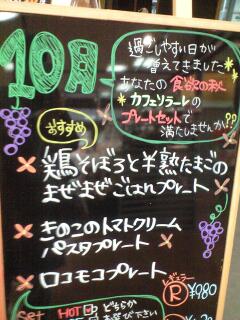 10月
過ごしやすい日が
増えてきました
あなたの食欲の秋
カフェソラーレの
プレートセットで
満たしませんか??
おすすめ
鶏そぼろと半熟たまごの
まぜまぜごはんプレート
きのこのトマトクリーム
パスタプレート
ロコモコプレート
レギュラー
R ¥980
set HOT どちらか
お選び下さい